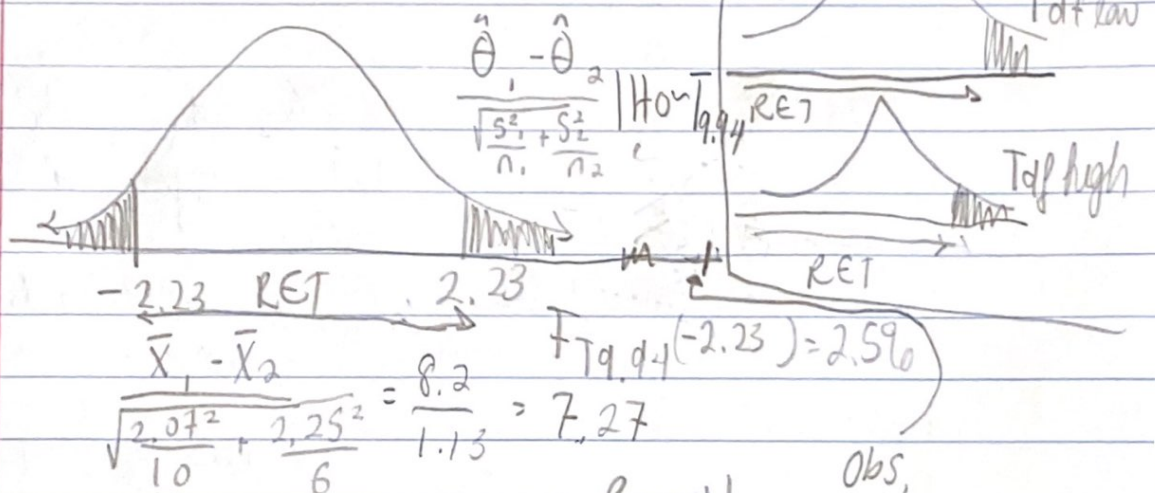 Tdf low
θ̂₁ - θ̂₂
√(S²₁/n₁ + S²₂/n₂) | H₀ ~ T₉.₉₄
RET
Tdf high
RET
-2.23 RET 2.23
F_T9.94(-2.23) = 2.5%
(X̄₁ - X̄₂) / √(2.07²/10 + 2.25²/6) = 8.2/1.13 = 7.27
Obs.